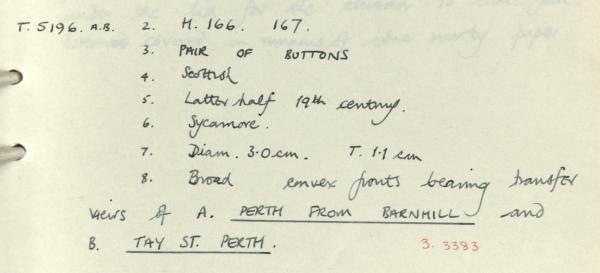 T. 5196. A.B. 2. H. 166. 167.
3. PAIR OF BUTTONS
4. Scottish
5. Latter half 19th century.
6. Sycamore.
7. Diam. 3.0 cm. T. 1.1 cm
8. Broad convex fronts bearing transfer
views of A. PERTH FROM BARNHILL and
B. TAY ST. PERTH.
3. 3383